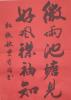 微雨池塘見
好風襟袖知